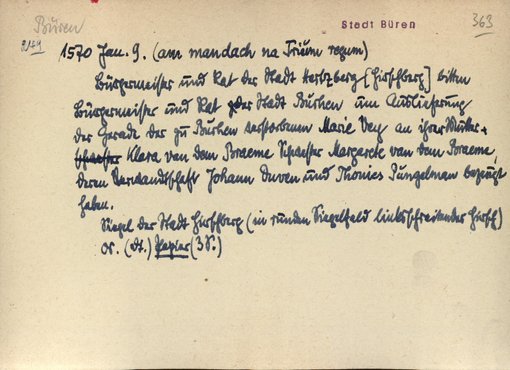 Büren
Stadt Büren
363
2149
1570 Jan. 9. (am mandach na Trium regum)
Bürgermeister und Rat der Stadt Hertzberg [Hirschberg] bitten
Bürgermeister und Rat der Stadt Burhen um Auslieferung
der Gerade der zu Burhen verstorbenen Marie Vey an ihrer Mutter
Schwester Klara van dem Broeme Schwester Margarete van dem Broeme,
deren Verwandtschaft Johann Duven und Thonies Pungelman bezeugt
haben.
Siegel der Stadt Hirschberg (in runden Siegelfeld linksschreitender Hirsch)
Or. (dt.) Papier (3 S.)